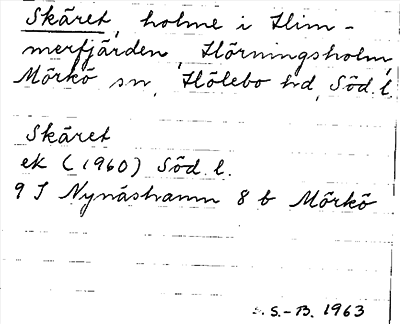 Skäret, holme i Him-
merfjärden, Hörningsholm,
Mörkö sn, Hölebo hd, Söd. l.
Skäret
ek (1960) Söd. l.
9 I Nynäshamn 8 b Mörkö
S.-B. 1963